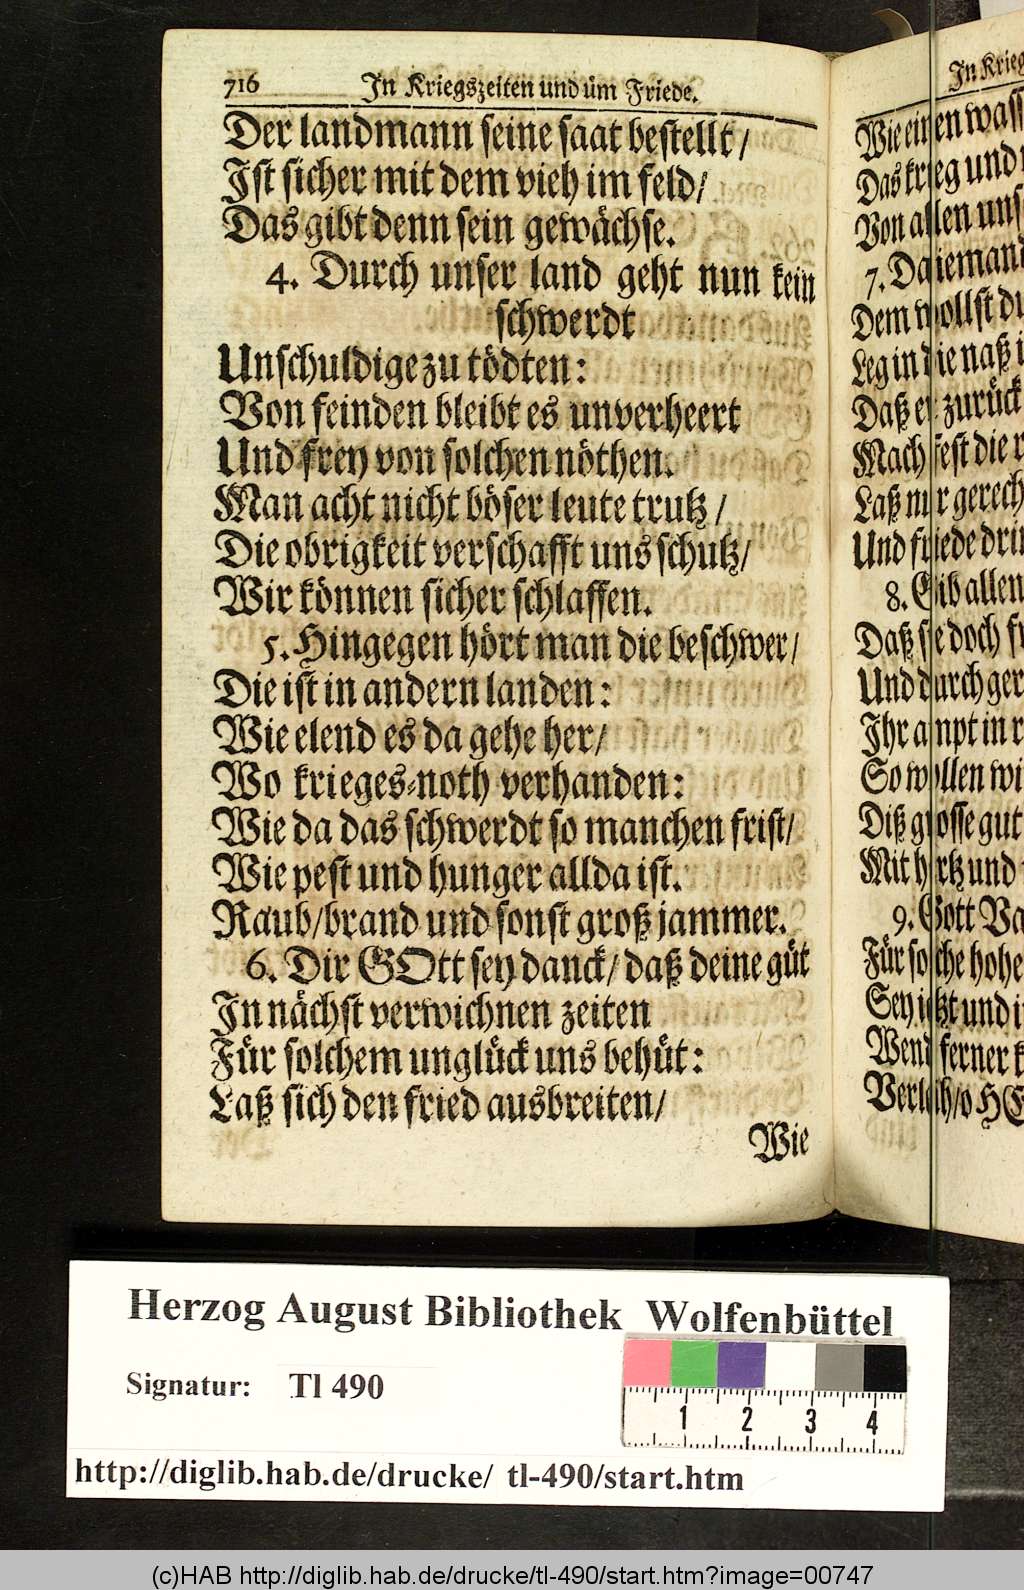 716 In Kriegszeiten und üm Friede.
Der landmann seine saat bestellt/
Ist sicher mit dem vieh im feld/
Das gibt denn sein gewächse.
4. Durch unser land geht nun kein
schwerdt
Unschuldige zu tödten:
Von feinden bleibt es unverheert
Und frey von solchen nöthen.
Man acht nicht böser leute trutz/
Die obrigkeit verschafft uns schutz/
Wir können sicher schlaffen.
5. Hingegen hört man die beschwer/
Die ist in andern landen:
Wie elend es da gehe her/
Wo krieges-noth verhanden:
Wie da das schwerdt so manchen frist/
Wie pest und hunger allda ist.
Raub/brand und sonst groß jammer.
6. Dir GOtt sey danck/ daß deine güt
In nächst verwichnen zeiten
Für solchem unglück uns behüt:
Laß sich den fried ausbreiten/
Wie
In Krieg
Wie einen wass
Das krieg und
Von allen uns
7. Da iemand
Dem wollst du
Leg in die naß
Daß er zurück
Mach fest die
Laß nur gerech
Und friede
8. Gib allen
Daß sie doch
Und durch ger
Ihr ampt in
So wollen wi
Diß grosse gut
Mit hertz und
9. Gott Va
Für solche hohe
Sey ietzt und
Wend ferner
Verleih/o HE
Herzog August Bibliothek Wolfenbüttel
Signatur: Tl 490
1 2 3 4
http://diglib.hab.de/drucke/ tl-490/start.htm
(c)HAB http://diglib.hab.de/drucke/tl-490/start.htm?image=00747